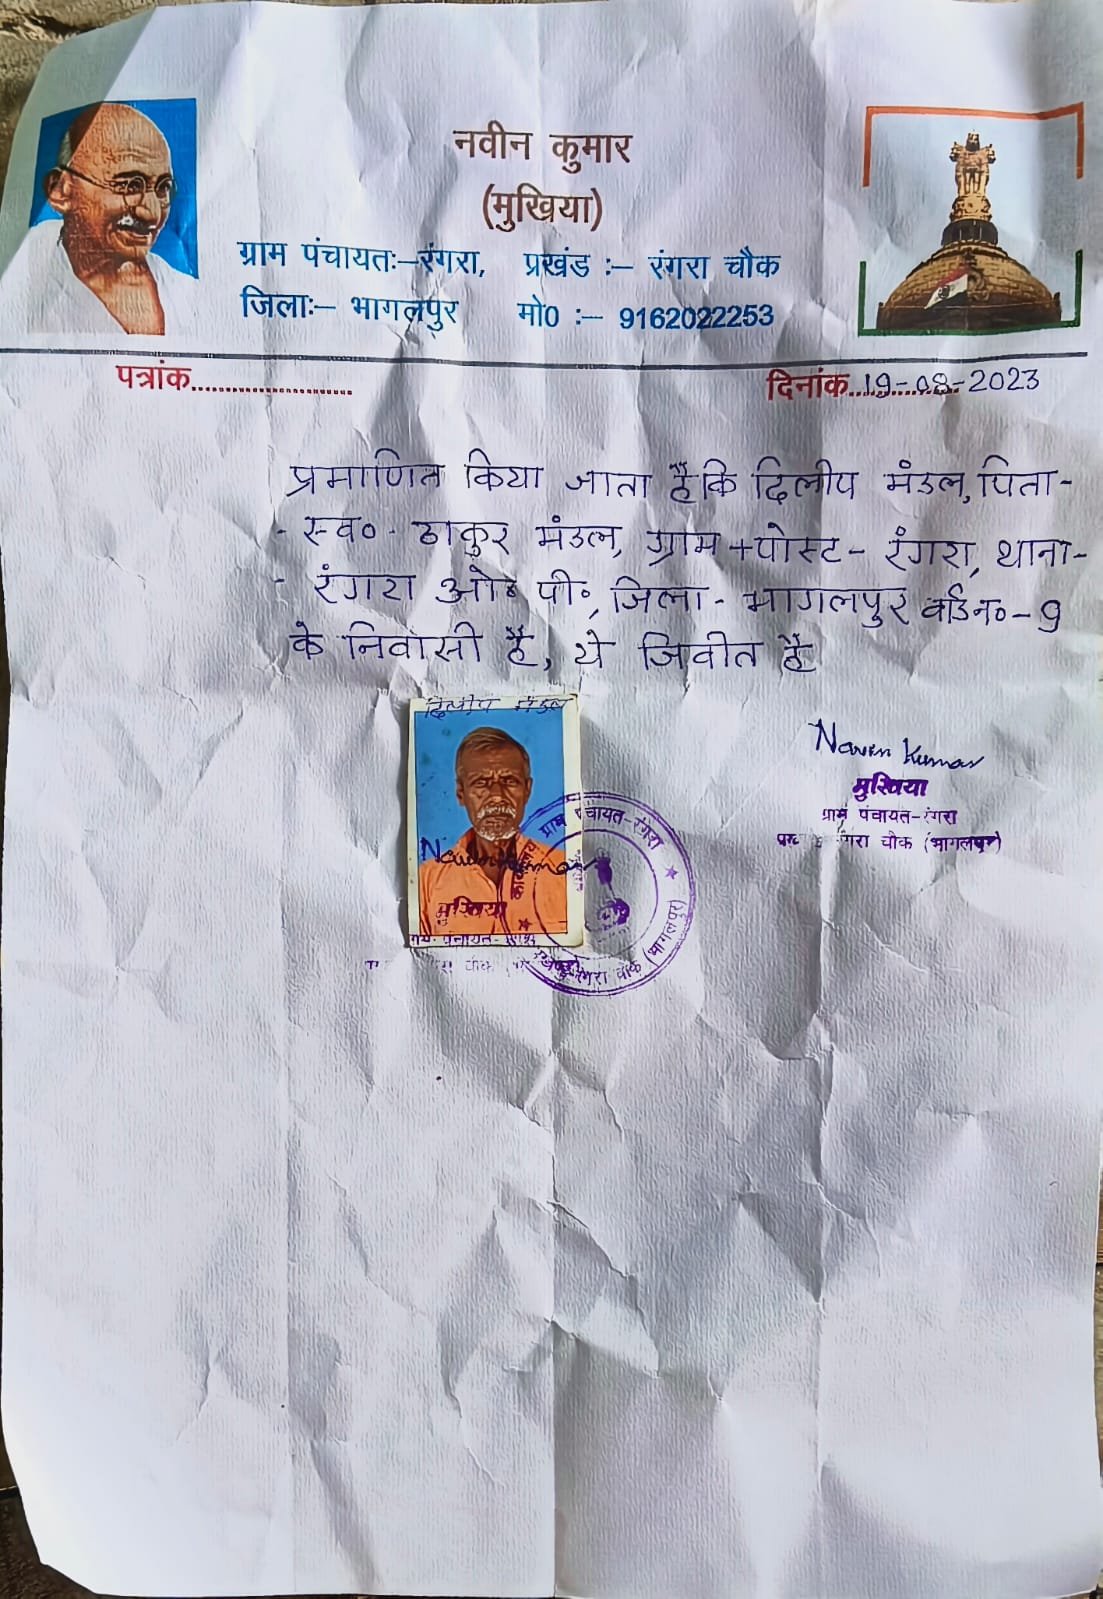 नवीन कुमार
(मुखिया)
ग्राम पंचायतः–रंगरा, प्रखंड :– रंगरा चौक
जिलाः– भागलपुर मो0 :– 9162022253
पत्रांक.........................
दिनांक..19-08-2023
प्रमाणित किया जाता है कि दिलीप मंडल, पिता-
- स्व० - ठाकुर मंडल, ग्राम + पोस्ट - रंगरा, थाना-
- रंगरा ओ० पी०, जिला - भागलपुर वार्ड न० - 9
के निवासी है, ये जिवीत है
दिलीप मंडल
Navin Kumar
मुखिया
ग्राम पंचायत-रंगरा
रंगरा चौक (भागलपुर)
Navin Kumar
मुखिया
पंचायत-
चौक
ग्राम पंचायत-रंगरा
कार्यालय
रंगरा चौक (भागलपुर)